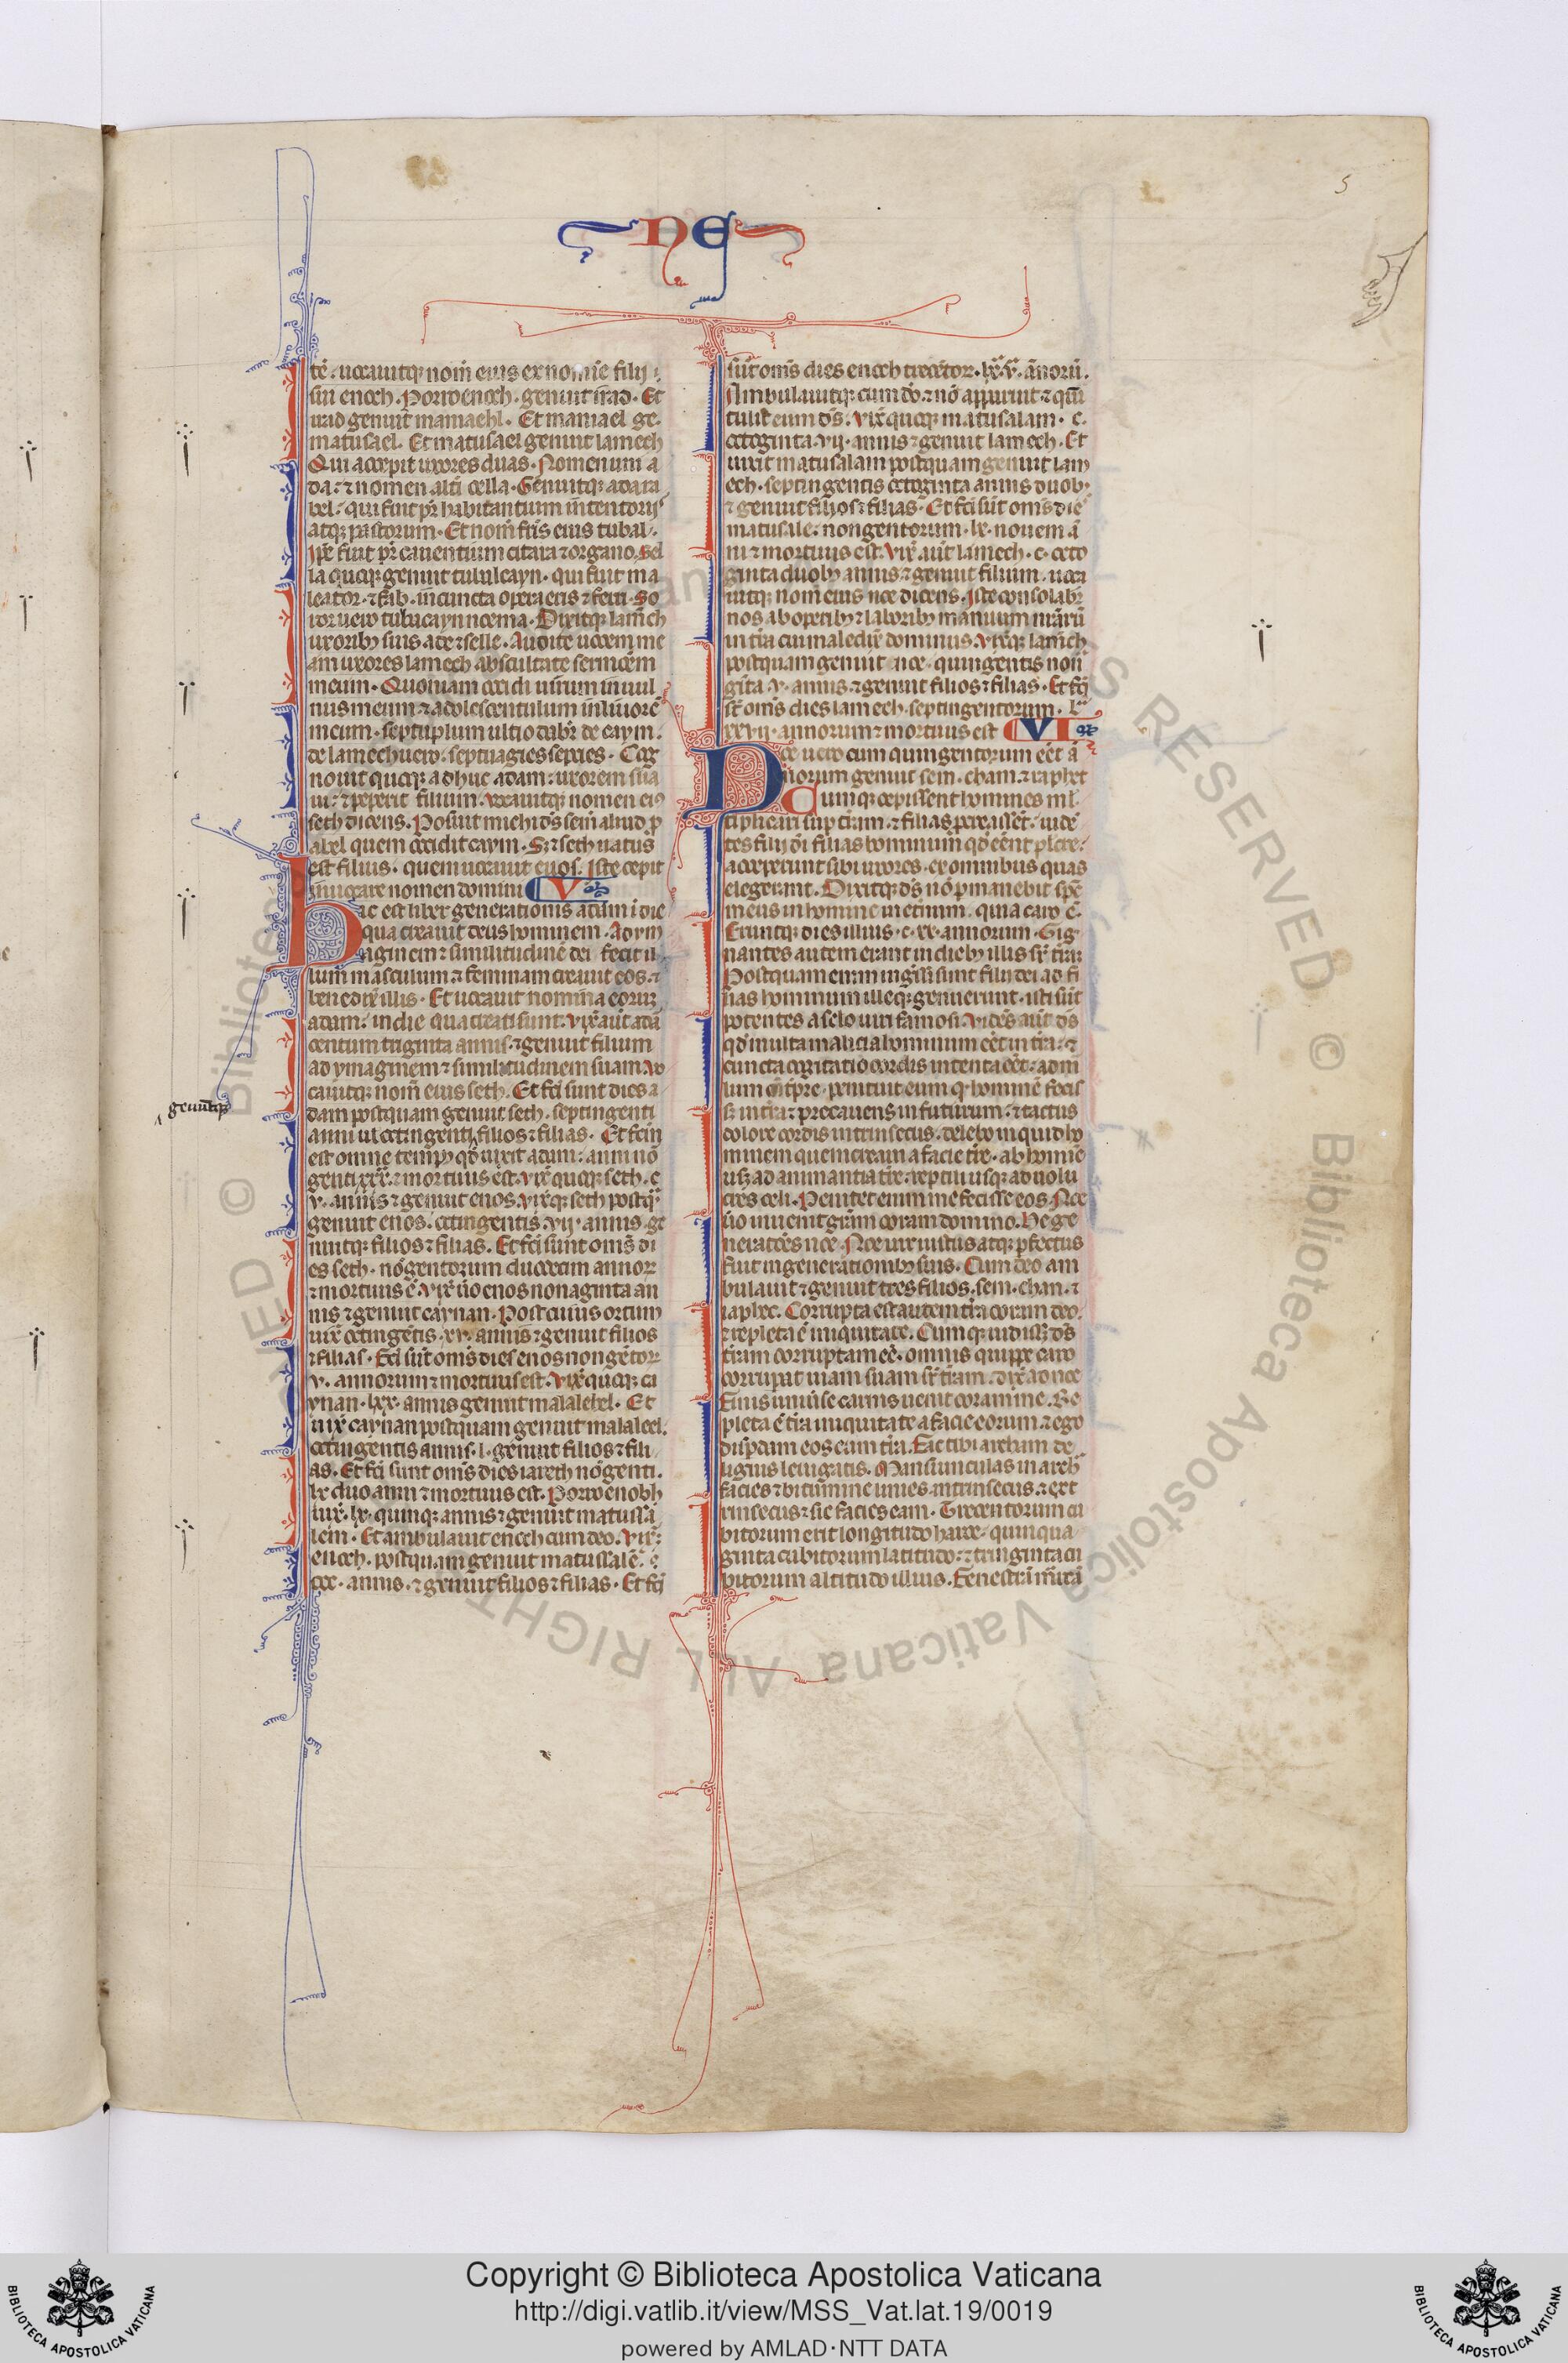 5
NE
tē. uocauitqꝫ nom̄ eius ex nomīe filij
sui enoch. Porro enoch. genuit irad. Et
irad genuit mamaehl. Et maniael ge.
matusael. Et matusael genuit lamech
Qui accepit uxores duas. Nomen uni a
da: ⁊ nomen alt̄i cella. Genuitqꝫ ada ia
bel. qui fuit pr̄ habitantium in tentorijs
atqꝫ pastorum. Et nom̄ fr̄is eius tubal.
Ip̄e fuit pr̄ canentium citara ⁊ organo. Sel
la quoqꝫ genuit tubulcayn. qui fuit ma
leator. ⁊ fab. in cuncta opera eris ⁊ ferri. So
ror uero tubacayn noema. Dixitqꝫ lamech
uxoribꝫ suis ade ⁊ selle. Audite uocem me
am uxores lamech abscultate sermonem
meum. Quoniam occidi uirum in uul
nus meum ⁊ adolescentulum in liuorē
meum. septuplum ultio dabit̄ de caym.
de lamech uero. septuagies sepcies. Cog
nouit quoqꝫ adhuc adam: uxorem sua
m: ⁊ peperit filium. uocauitqꝫ nomen eiꝰ
seth dicens. Posuit michi dꝰs semē aliud p
abel quem occidit caym. Sꝫ ⁊ seth natus
est filius. quem uocauit enos. Iste cepit
inuocare nomen domini V
Hic est liber generationis adam i die
qua creauit deus hominem. Ad ym
aginem ⁊ similitudinē dei fecit il
lum masculum ⁊ feminam creauit eos. ⁊
benedix̄ illis. Et uocauit nomina eorum
adam: in die qua creati sunt. Vix̄ aut̄ adā
centum triginta annis. ⁊ genuit filium
ad ymaginem ⁊ similitudinem suam. Vo
cauitqꝫ nom̄ eius seth. Et fc̄i sunt dies a
genuitqꝫ
dam postquam genuit seth. septingenti
anni ul octingenti filios ⁊ filias. Et fc̄m
est omne tempꝰ qd̄ uixit adam: anni nō
genti xxx. ⁊ mortuus est. Vix̄ quoqꝫ seth. c
v. annis ⁊ genuit enos. Vix̄qꝫ seth postqꝫ
genuit enos. octingentis. vij. annis. ge
nuitqꝫ filios ⁊ filias. Et fc̄i sunt om̄s di
es seth. nōgentorum duodecim annorꝫ
⁊ mortuus ē. Vix̄ ūo enos nonaginta an
nis ⁊ genuit caynan. Post cuius ortum
uix̄ octingētis. xv. annis ⁊ genuit filios
⁊ filias. Fc̄i sūt om̄s dies enos nongētorꝫ
v. annorum ⁊ mortuus est. Vix̄ quoqꝫ ca
ynan. lxx. annis genuit malalehel. Et
uix̄ caynan postquam genuit malaleel.
octingentis annis. l. genuit filios ⁊ fili
as. Et fc̄i sunt om̄s dies iareth nōgenti.
lx duo anni ⁊ mortuus est. Porro enobh
uix̄. lx. quinqꝫ annis ⁊ genuit matussa
lem. Et ambulauit enoch cum deo. Vix̄:
enoch. postquam genuit matussalē.
ccc. annis. ⁊ genuit filios ⁊ filias. Et fc̄i
sūt om̄s dies enoch trecētor. lx. v. annorū.
Ambulauitqꝫ cum dō. ⁊ nō apparuit ⁊ quī
tulit eum dꝰs. Vix̄ quoqꝫ matusalam. c.
octoginta. vij. annis ⁊ genuit lamech. Et
uixit matusalam postquam genuit lam
ech. septingentis octoginta annis duobꝰ
⁊ genuit filios ⁊ filias. Et fc̄i sūt om̄s die
matusale: nongentorum. lx. nouem. ā
ni ⁊ mortuus est. Vix̄ aut̄ lamech. c. octo
ginta duobꝫ annis ⁊ genuit filium. uoca
uitqꝫ nom̄ eius noe dicens. Iste consolabit̄
nos ab operibꝫ ⁊ laboribꝫ manuum nr̄arū
in tr̄a cui maledix̄ dominus. Vix̄qꝫ lamech
postquam genuit noe. quingentis non
ginta. v. annis. ⁊ genuit filios ⁊ filias. Et fc̄i
st̄ om̄s dies lamech. septingentorum. l
xxvij. annorum ⁊ mortuus est VI
Noe uero cum quingentorum eēt ā
norum genuit sem. cham. ⁊ iaphet
Cumqꝫ cepissent homines ml̄
tiplicari sup terram. ⁊ filias procreassēt. uidē
tes filij dī filias hominum qd̄ eēnt pulcre.
acceperunt sibi uxores. ex omnibus quas
elegerant. Dixitqꝫ dꝰs nō pmanebit spc̄
meus in homine in etnum. quia caro ē.
Eruntqꝫ dies illius. c. xx. annorum. Gig
nantes autem erant in diebꝫ illis sr̄ tr̄am
Postquam enim ingr̄ssi sunt filii dei ad fi
lias hominum illeqꝫ genuerunt. isti sūt
potentes a sclo uiri famosi. Vidēs aut̄ dꝰs
qd̄ multa malicia hominum eēt in tr̄a: ⁊
cuncta cogitatio cordis intenta eēt. ad m
lum oī tpre. penituit eum qꝫ hominē fecis
sꝫ in tr̄a: ⁊ precauens in futurum. ⁊ tactus
dolore cordis intrinsecus. delebo inquid ho
minem quem creaui a facie tr̄e. ab homīe
usqꝫ ad animantia tr̄e. reptili usqꝫ ad uolu
cres celi. Penitet enim me fecisse eos. Noe
ūo inuenit gr̄am coram domino. He ge
neratoēs noe. Noe uir iustus atqꝫ pfectus
fuit in generationibꝫ suis. Cum deo am
bulauit ⁊ genuit tres filios. sem. chan. ⁊
iaphec. Corrupta est autem tr̄a coram deo.
⁊ repleta ē iniquitate. Cumqꝫ uidissꝫ dꝰs
terram corruptam eē. omnis quippe caro
corruperat uiam suam sr̄ tr̄am. dix̄ ad noe
Finis uniuse carnis uenit coram me. Re
pleta ē tr̄a iniquitate a facie eorum. ⁊ ego
disp̄dam eos cum tr̄a. Fac tibi archam de
lignis leuigatis. Mansiunculas in arch
facies ⁊ bitumine linies. intrinsecus. ⁊ ext
rinsecus ⁊ sic facies eam. Trecentorum cu
bitorum erit longitudo harce. quinqua
ginta cubitorum latitudo. ⁊ tringinta cu
bitorum altitudo illius. Fenestrā in arca
Copyright © Biblioteca Apostolica Vaticana
http://digi.vatlib.it/view/MSS_Vat.lat.19/0019
powered by AMLAD·NTT DATA
BIBLIOTECA APOSTOLICA VATICANA
BIBLIOTECA APOSTOLICA VATICANA